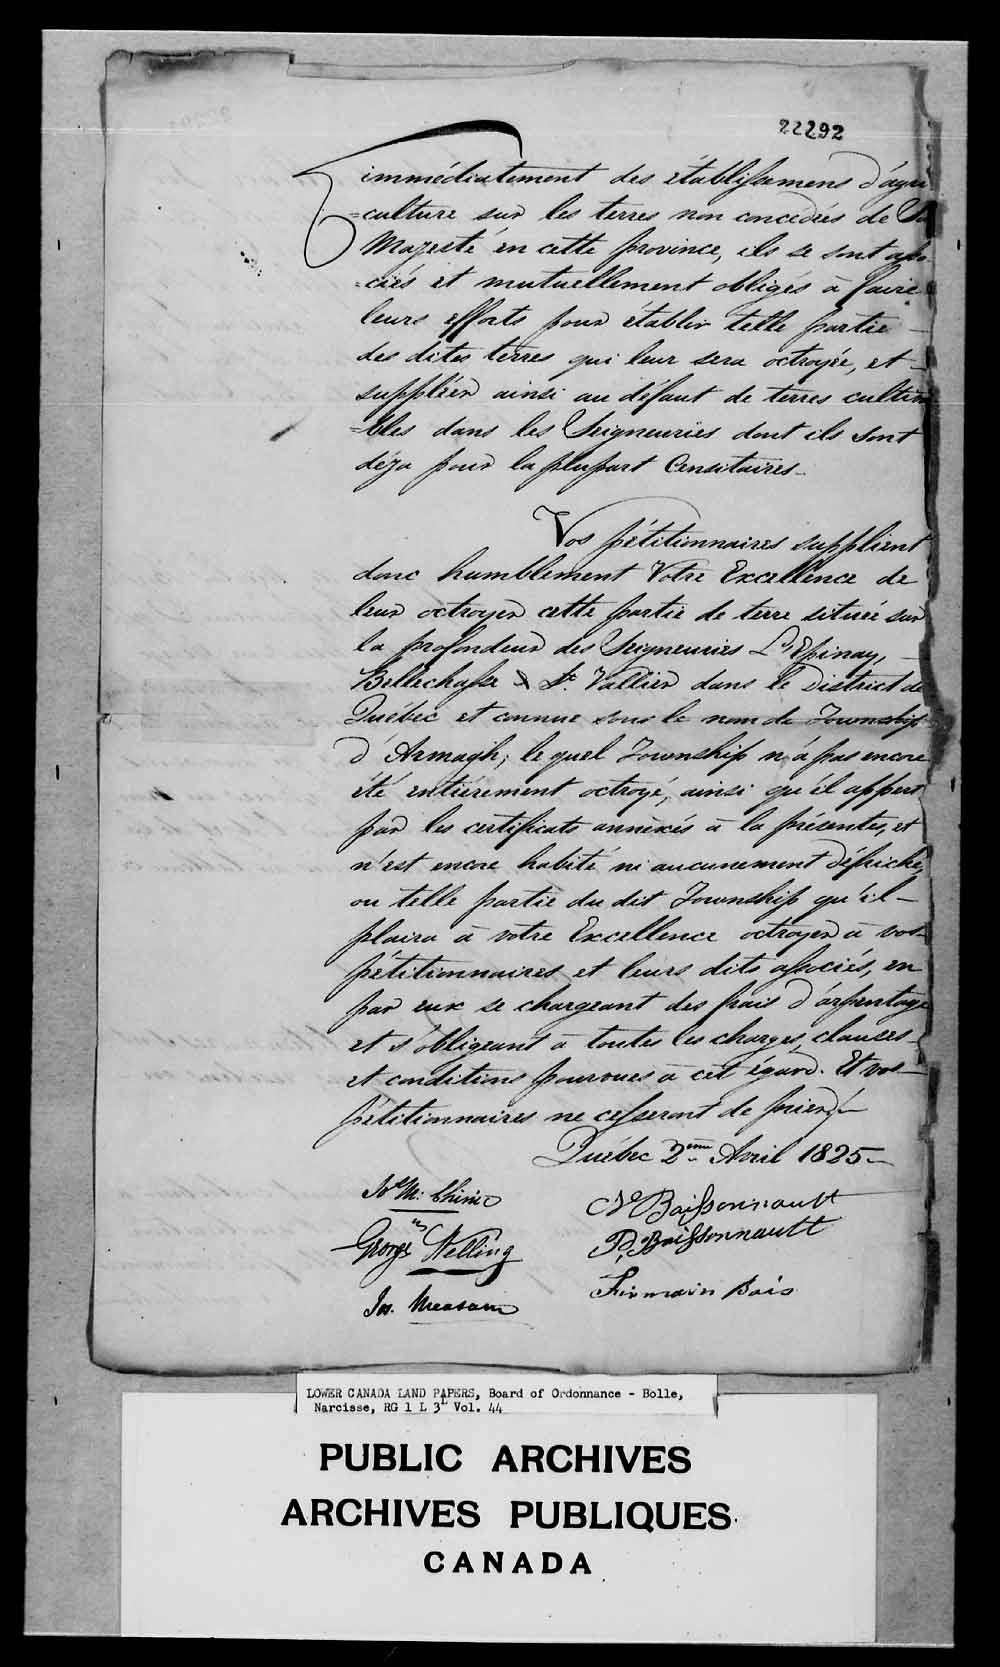 22292
immédiatement des établissemens d'agri
=culture sur les terres non concedées de Sa
Majesté en cette province, ils se sont asso
=ciés et mutuellement obligés à faire
leurs efforts pour établir telle partie
des dites terres qui leur sera octroyée, et
suppléer ainsi au défaut de terres cultiva
=bles dans les Seigneuries dont ils sont
déja pour la plupart Censitaires.
Vos pétitionnaires supplient
donc humblement Votre Excellence de
leur octroyer cette partie de terre située sur
la profondeur des Seigneuries L'Epinay,
Bellechasse & St. Vallier dans le District de
Québec et connue sous le nom de Township
d'Armagh, le quel Township n'a pas encore
été entièrement octroyé, ainsi qu'il appert
par les certificats annexés à la présente, et
n'est encore habité ni aucunement défriché,
ou telle partie du dit Township qu'il
plaira à votre Excellence octroyer à vos
pétitionnaires et leurs dits associés, en
par eux se chargeant des frais d'arpentage
et s'obligeant à toutes les charges, clauses
et conditions pourvues à cet égard. Et vos
pétitionnaires ne cesseront de prier
Québec 2eme Avril 1825
Ns Boissonnault
George Welling P. Boissonnault
Firmain Bois
Jos. Measam
LOWER CANADA LAND PAPERS, Board of Ordonnance - Bolle,
Narcisse, RG 1 L 3L Vol. 44
PUBLIC ARCHIVES
ARCHIVES PUBLIQUES
CANADA